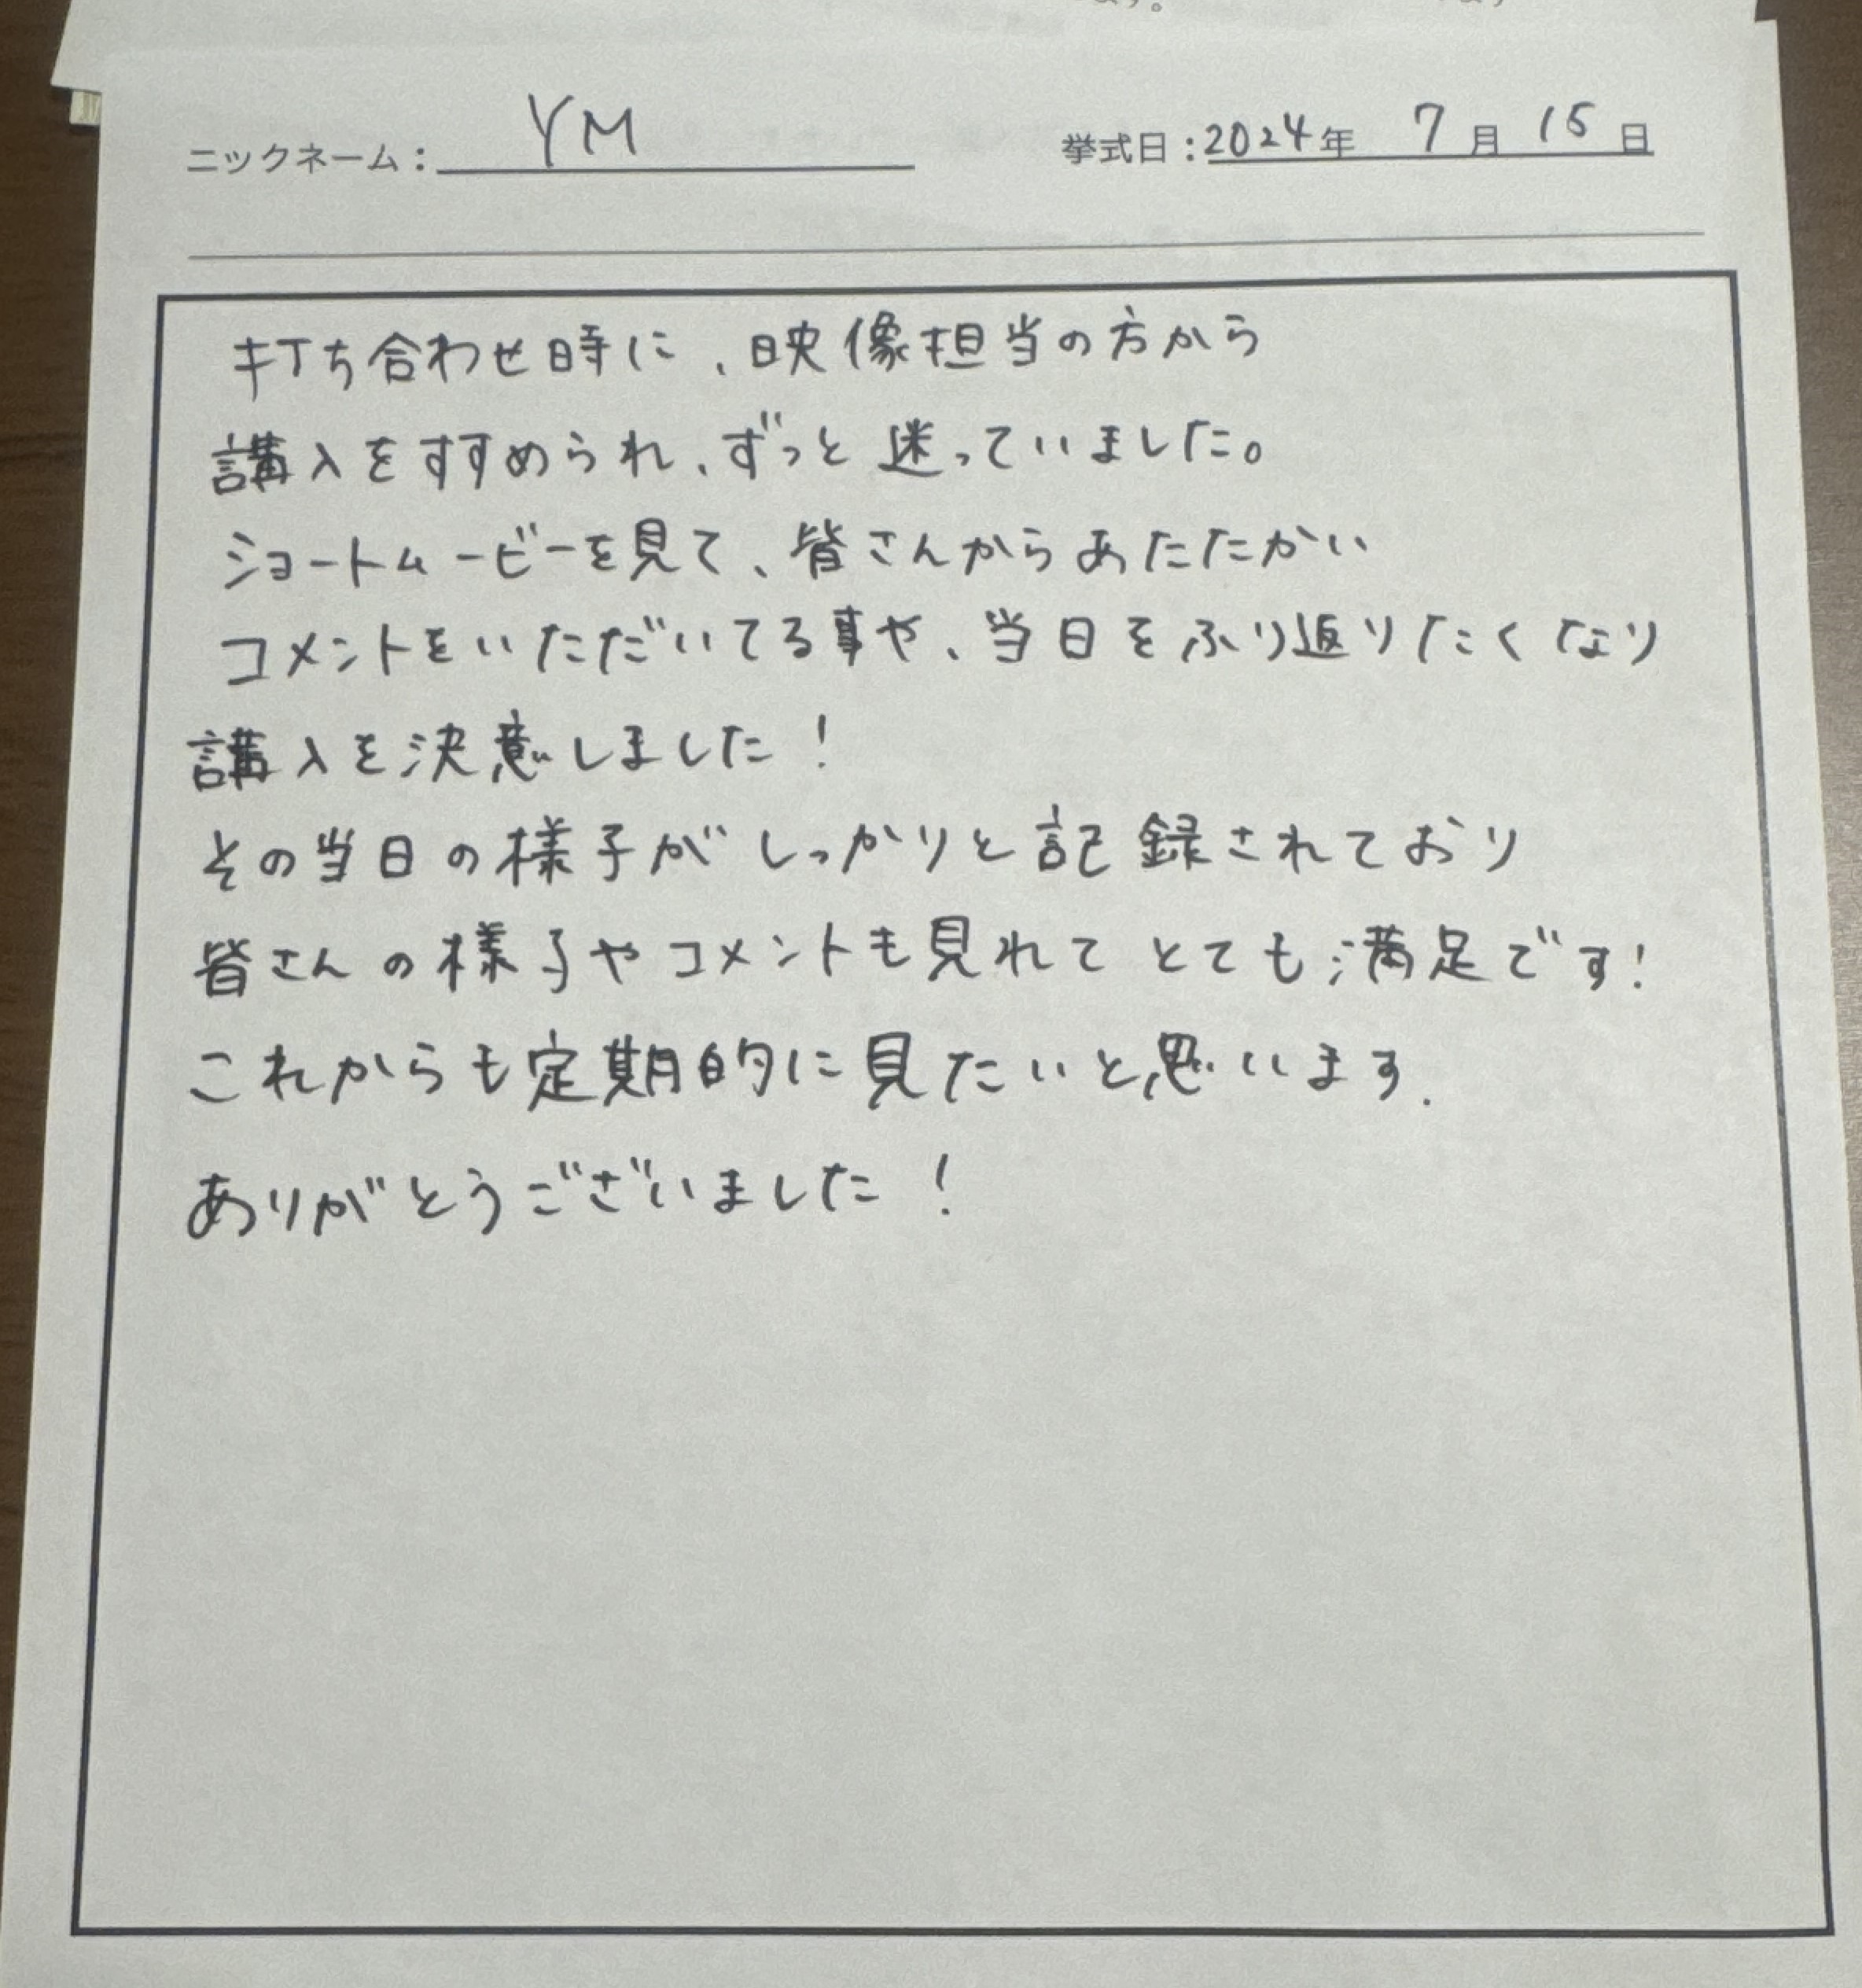 ニックネーム： YM 挙式日：2024年 7月 15日
打ち合わせ時に、映像担当の方から
講入をすすめられ、ずっと迷っていました。
ショートムービーを見て、皆さんからあたたかい
コメントをいただいてる事や、当日をふり返りたくなり
講入を決意しました！
その当日の様子がしっかりと記録されており
皆さんの様子やコメントも見れてとても満足です！
これからも定期的に見たいと思います.
ありがとうございました！